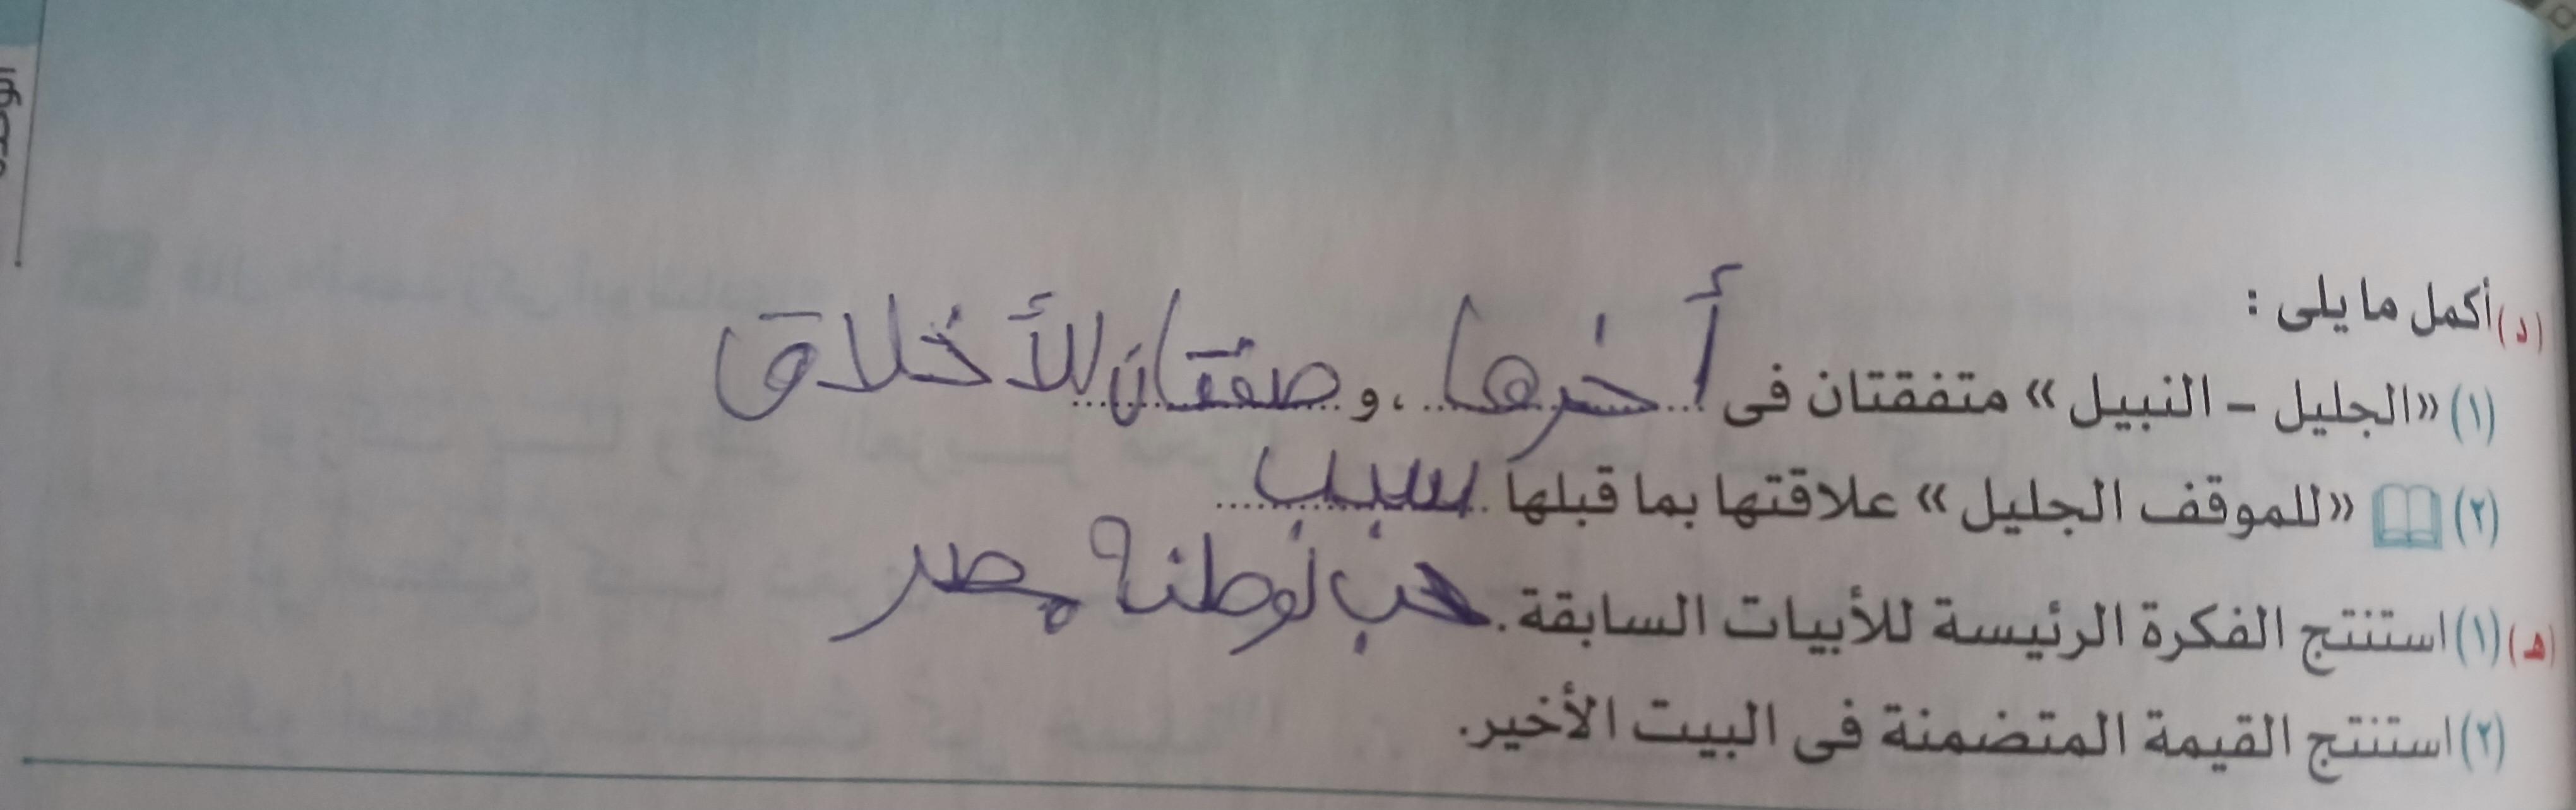 (د) أكمل ما يلى :
(١) «الجليل - النبيل» متفقتان فى أخرها ، و صفتان للأخلاق
(٢) «للموقف الجليل» علاقتها بما قبلها سبب
(هـ) (١) استنتج الفكرة الرئيسة للأبيات السابقة. حب لوطنه مصر
(٢) استنتج القيمة المتضمنة فى البيت الأخير.